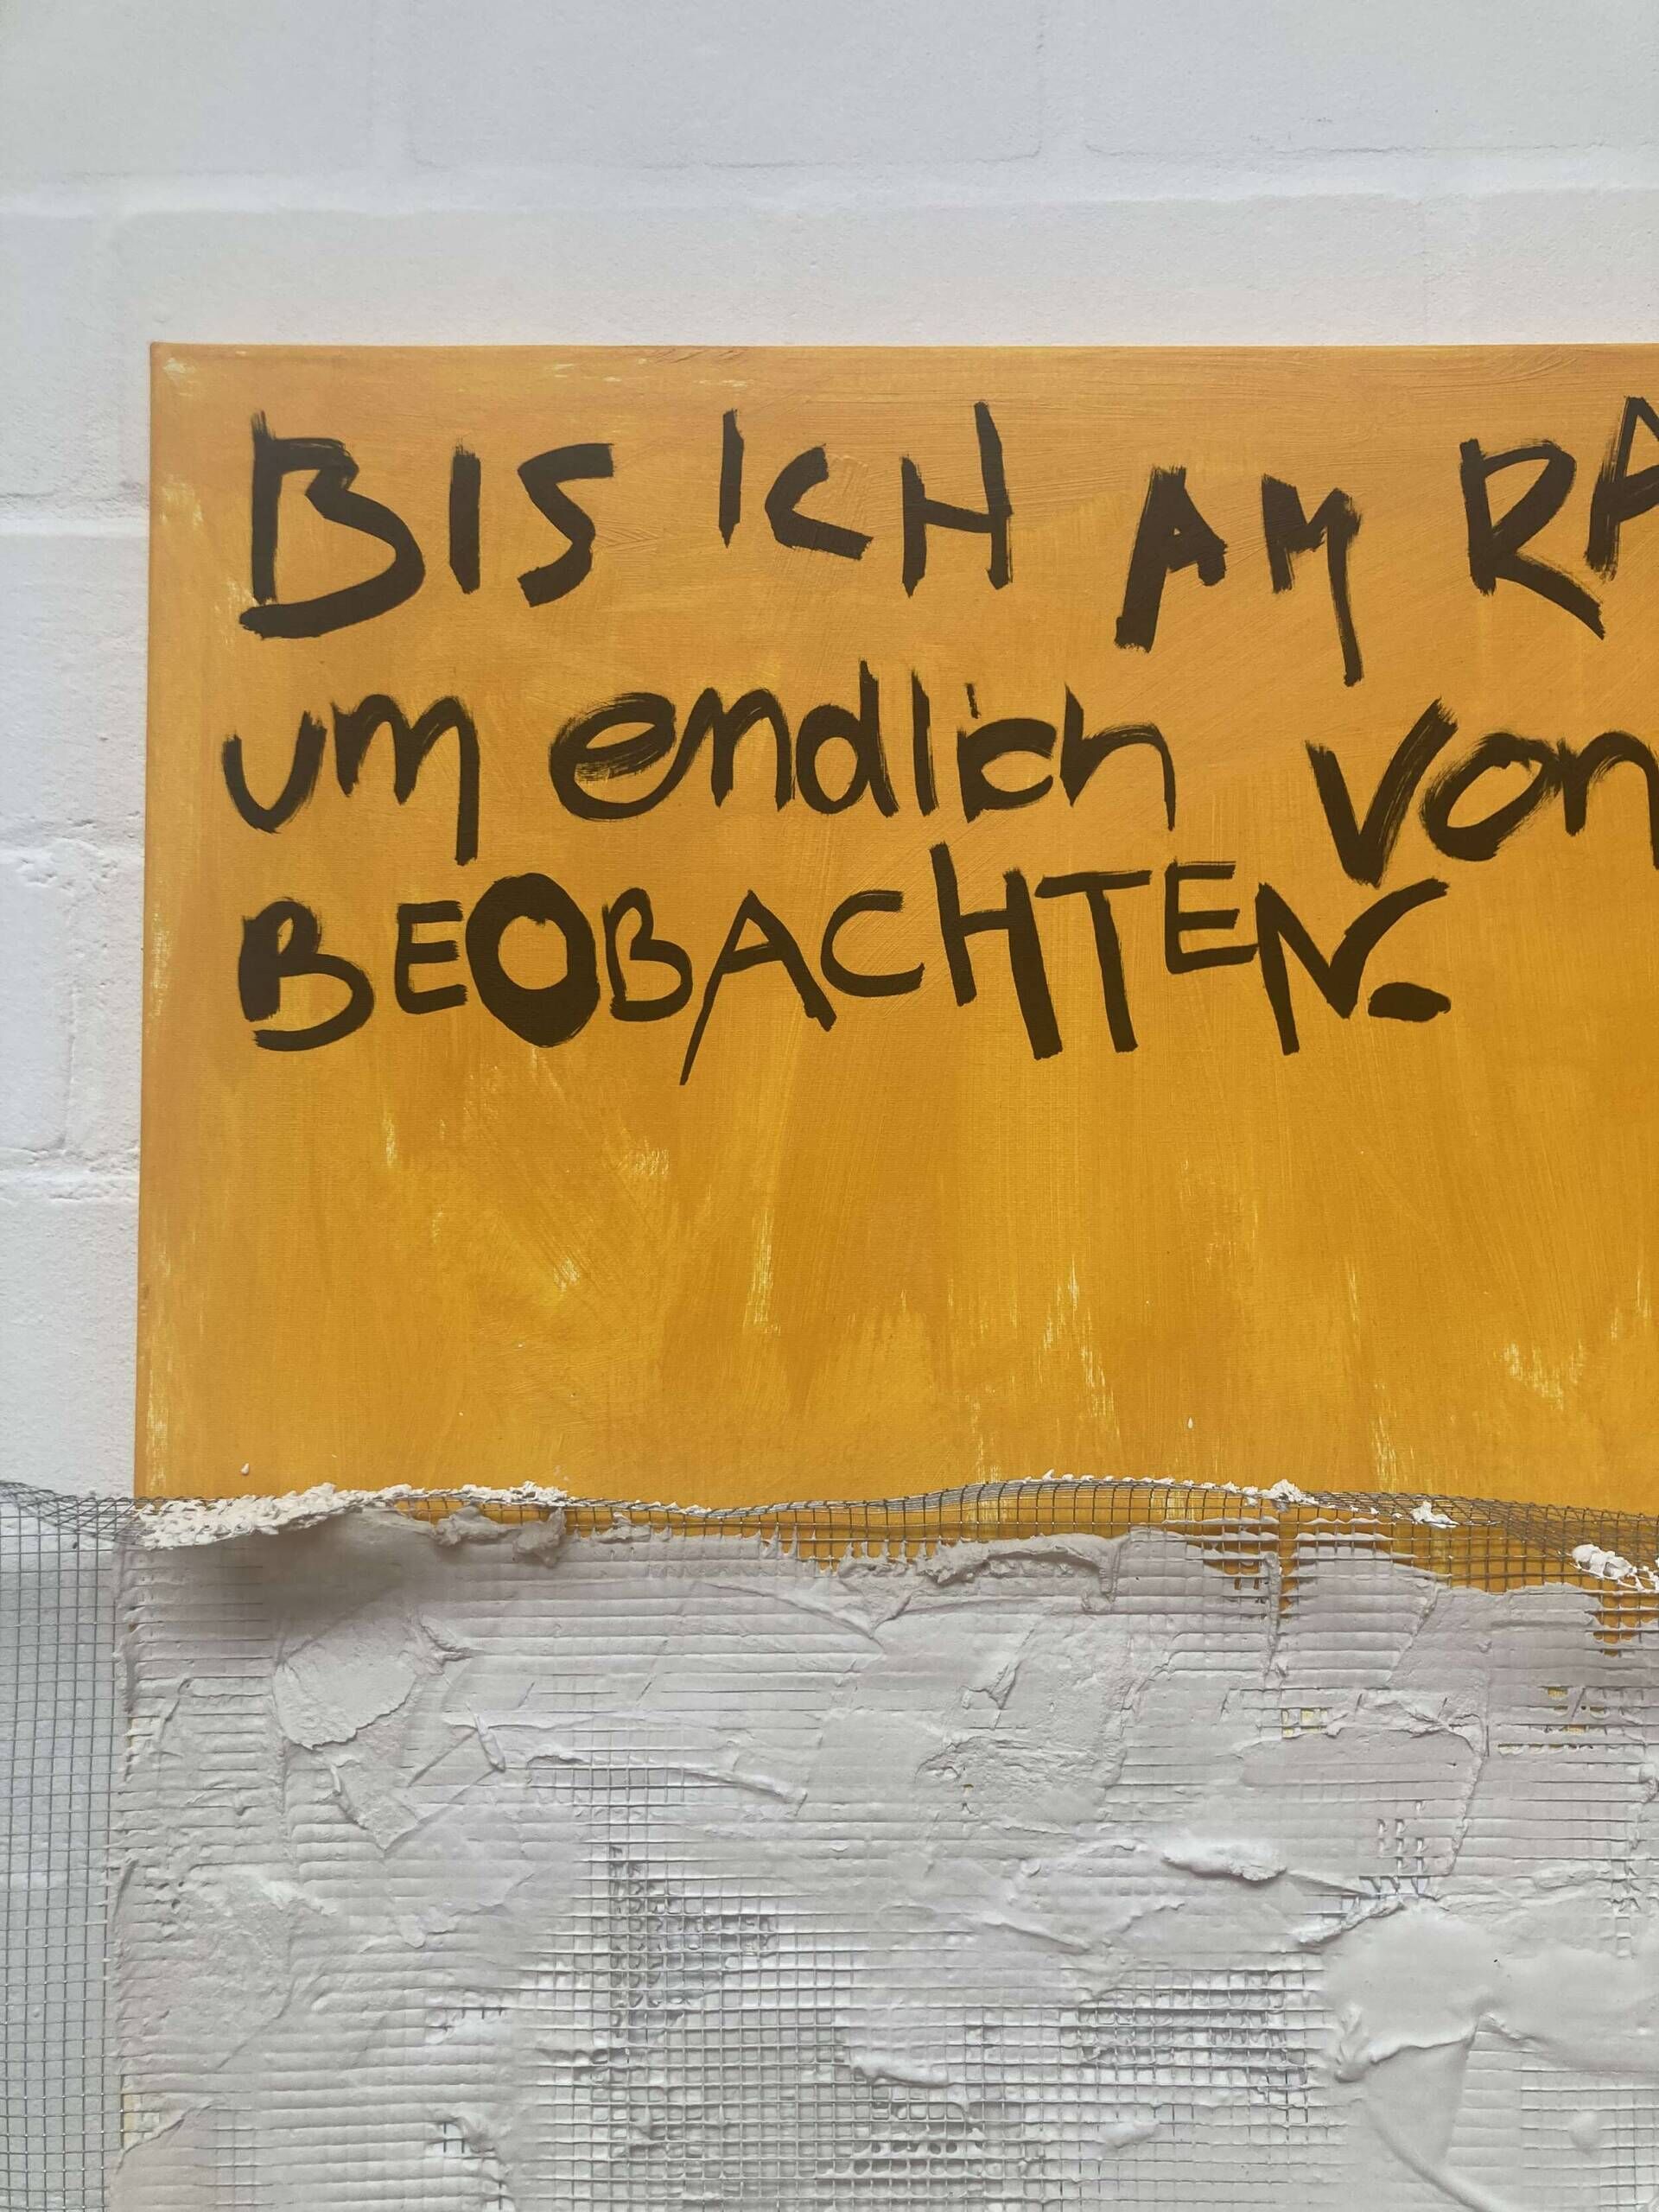 BIS ICH AM RA
um endlich von
BEOBACHTEN.